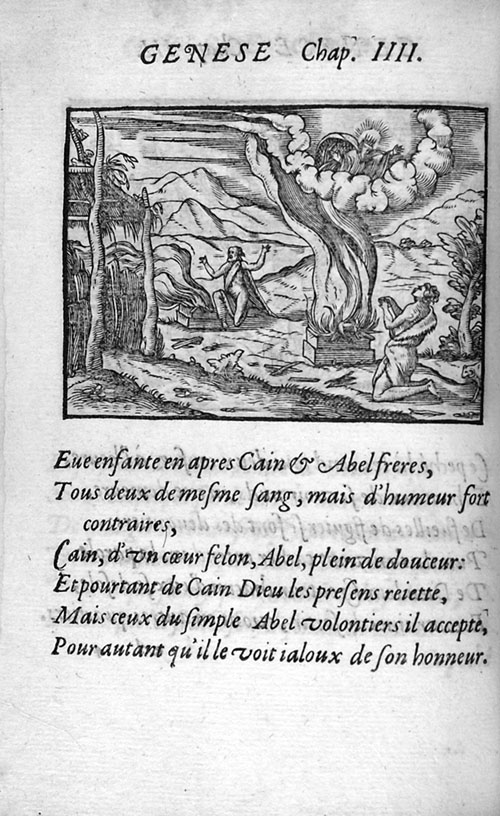 GENESE Chap. IIII.
Eue enfante en apres Cain & Abel freres,
Tous deux de mesme sang, mais d'humeur fort
contraires,
Cain, d'vn cœur felon, Abel, plein de douceur:
Et pourtant de Cain Dieu les presens reiette,
Mais ceux du simple Abel volontiers il accepte,
Pour autant qu'il le voit ialoux de son honneur.